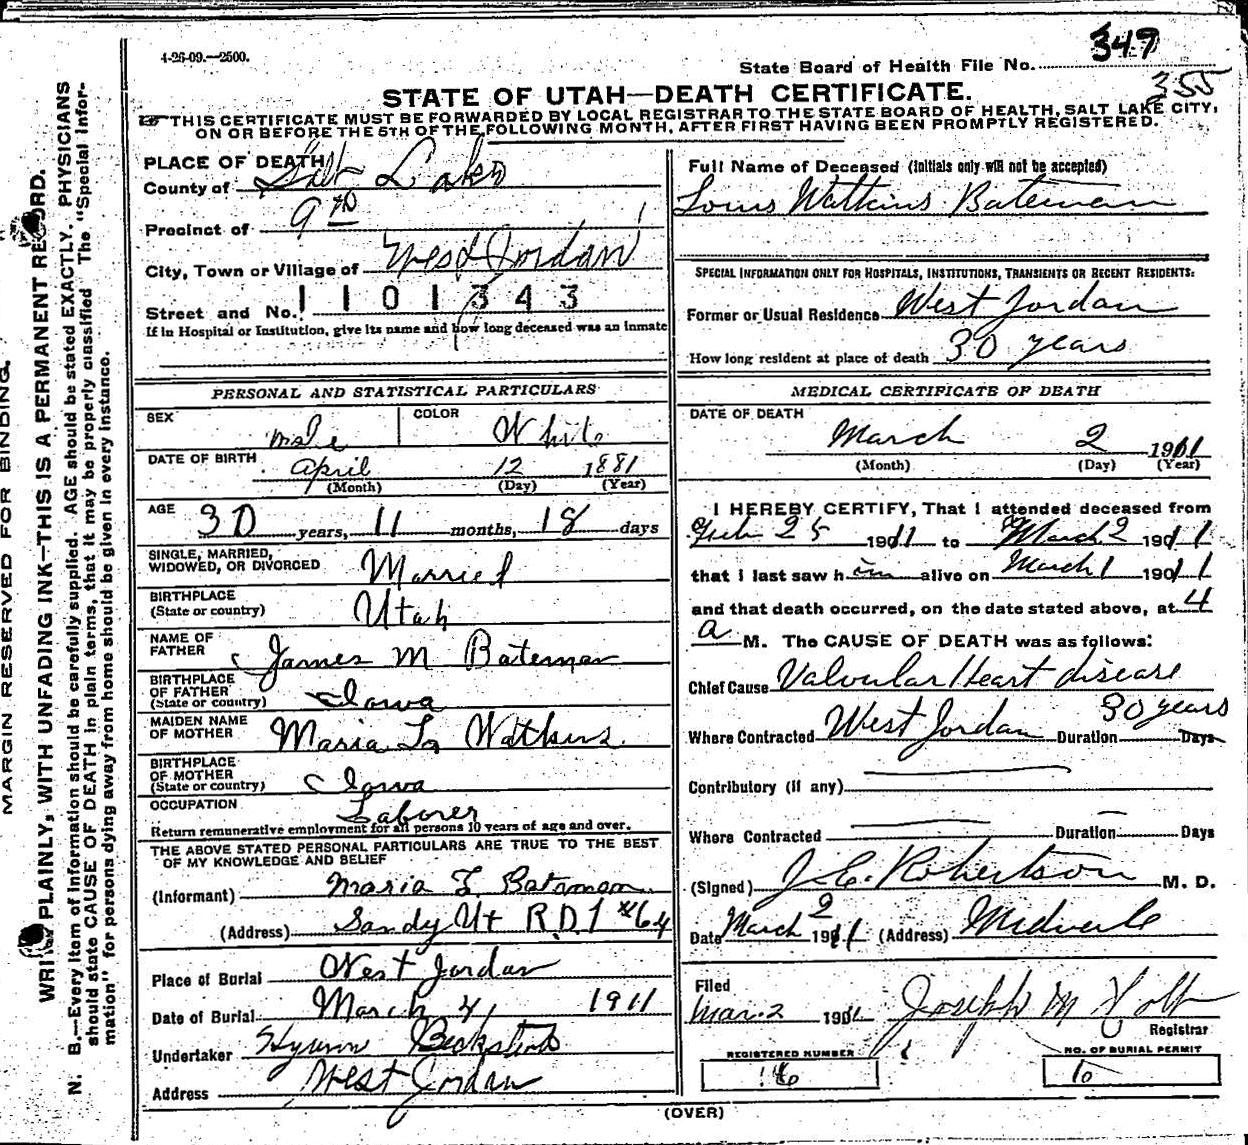 4-26-09.—2500.
349
State Board of Health File No.
355
STATE OF UTAH—DEATH CERTIFICATE.
THIS CERTIFICATE MUST BE FORWARDED BY LOCAL REGISTRAR TO THE STATE BOARD OF HEALTH, SALT LAKE CITY,
ON OR BEFORE THE 5TH OF THE FOLLOWING MONTH, AFTER FIRST HAVING BEEN PROMPTLY REGISTERED.
PLACE OF DEATH
County of Salt Lake
Precinct of 9th
City, Town or Village of West Jordan
Street and No. 1 1 0 1 3 4 3
If in Hospital or Institution, give its name and how long deceased was an inmate
Full Name of Deceased (Initials only will not be accepted)
Louis Watkins Bateman
SPECIAL INFORMATION ONLY FOR HOSPITALS, INSTITUTIONS, TRANSIENTS OR RECENT RESIDENTS:
Former or Usual Residence West Jordan
How long resident at place of death 30 years
PERSONAL AND STATISTICAL PARTICULARS
SEX male COLOR White
DATE OF BIRTH April 12 1881
(Month) (Day) (Year)
AGE 30 years, 11 months, 18 days
SINGLE, MARRIED,
WIDOWED, OR DIVORCED Married
BIRTHPLACE
(State or country) Utah
NAME OF
FATHER James M Bateman
BIRTHPLACE
OF FATHER
(State or country) Iowa
MAIDEN NAME
OF MOTHER Maria L Watkins
BIRTHPLACE
OF MOTHER
(State or country) Iowa
OCCUPATION Laborer
Return remunerative employment for all persons 10 years of age and over.
THE ABOVE STATED PERSONAL PARTICULARS ARE TRUE TO THE BEST
OF MY KNOWLEDGE AND BELIEF
(Informant) Maria L Bateman
(Address) Sandy Ut R.D.1 #64
Place of Burial West Jordan
Date of Burial March 4, 1911
Undertaker Hyrum
Address West Jordan
MEDICAL CERTIFICATE OF DEATH
DATE OF DEATH
March 2 1911
(Month) (Day) (Year)
I HEREBY CERTIFY, That I attended deceased from
Feb 25 1911 to March 2 1911
that I last saw him alive on March 1 1911
and that death occurred, on the date stated above, at 4
a M. The CAUSE OF DEATH was as follows:
Chief Cause Valvular Heart disease
30 years
Where Contracted West Jordan Duration Days
Contributory (if any)
Where Contracted Duration Days
(Signed) J. E. Robertson M. D.
Date March 2 1911 (Address) Midvale
Filed
Mar. 2 1911 Joseph M Holt
Registrar
REGISTERED NUMBER 16
NO. OF BURIAL PERMIT
(OVER)
MARGIN RESERVED FOR BINDING.
WRITE PLAINLY, WITH UNFADING INK—THIS IS A PERMANENT RECORD.
N. B.—Every item of information should be carefully supplied. AGE should be stated EXACTLY. PHYSICIANS
should state CAUSE OF DEATH in plain terms, that it may be properly classified. The "Special Infor-
mation" for persons dying away from home should be given in every instance.